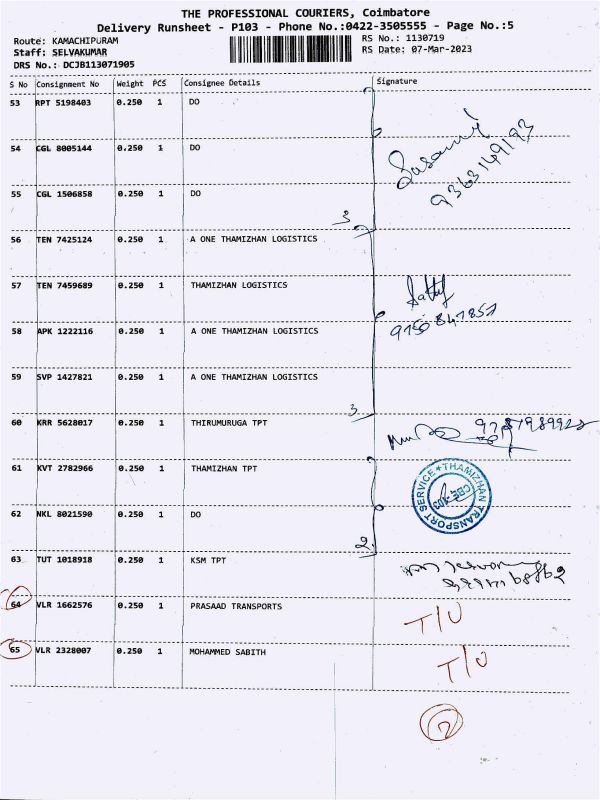 THE PROFESSIONAL COURIERS, Coimbatore
Delivery Runsheet - P103 - Phone No.:0422-3505555 - Page No.:5
Route: KAMACHIPURAM RS No.: 1130719
Staff: SELVAKUMAR RS Date: 07-Mar-2023
DRS No.: DCJB113071905
S No Consignment No Weight PCS Consignee Details Signature
53 RPT 5198403 0.250 1 DO
54 CGL 8005144 0.250 1 DO
9363149193
55 CGL 1506858 0.250 1 DO
3
56 TEN 7425124 0.250 1 A ONE THAMIZHAN LOGISTICS
57 TEN 7459689 0.250 1 THAMIZHAN LOGISTICS
58 APK 1222116 0.250 1 A ONE THAMIZHAN LOGISTICS
59 SVP 1427821 0.250 1 A ONE THAMIZHAN LOGISTICS
3
60 KRR 5628017 0.250 1 THIRUMURUGA TPT
61 KVT 2782966 0.250 1 THAMIZHAN TPT
THAMIZHAN TRANSPORT SERVICE
62 NKL 8021590 0.250 1 DO
2
63 TUT 1018918 0.250 1 KSM TPT
64 VLR 1662576 0.250 1 PRASAAD TRANSPORTS T/U
65 VLR 2328007 0.250 1 MOHAMMED SABITH T/U
2